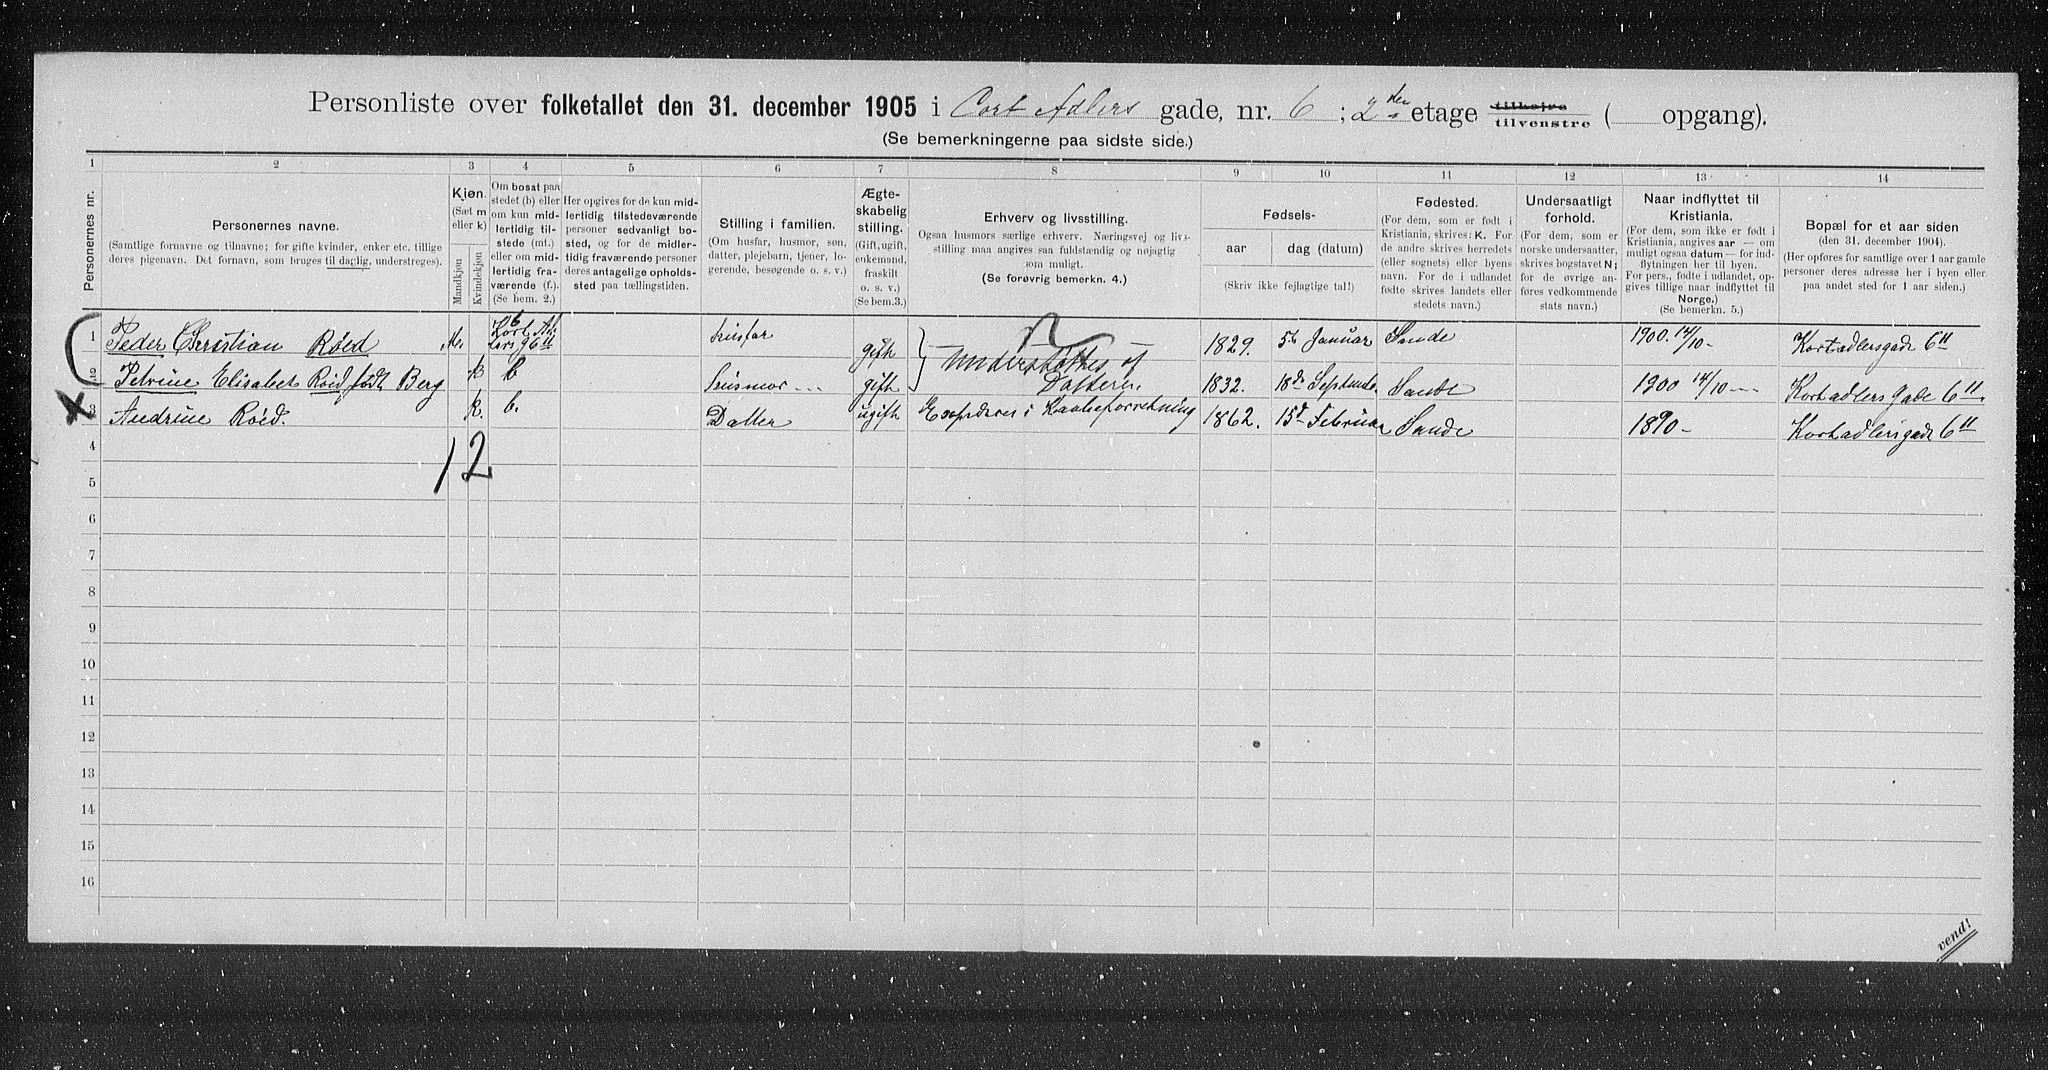 Personliste over folketallet den 31. december 1905 i Cort Adlers gade, nr. 6 ; 2den etage tilhøjre tilvenstre ( opgang).
(Se bemerkningerne paa sidste side.)
1 2 3 4 5 6 7 8 9 10 11 12 13 14
Personernes nr.
Personernes navne.
(Samtlige fornavne og tilnavne; for gifte kvinder, enker etc. tillige
deres pigenavn. Det fornavn, som bruges til daglig, understreges).
Kjøn.
(Sæt m
eller k)
Mandkjøn
Kvindekjøn
Om bosat paa
stedet (b) eller
om kun mid-
lertidig til-
stede (mt.)
eller om mid-
lertidig fra-
værende (f.).
(Se bem. 2.)
Her opgives for de kun mid-
lertidig tilstedeværende
personer sedvanligt bo-
sted, og for de midler-
tidig fraværende personer
deres antagelige opholds-
sted paa tællingstiden.
Stilling i familien.
(Om husfar, husmor, søn,
datter, plejebarn, tjener, lo-
gerende, besøgende o. s. v.)
Ægte-
skabelig
stilling.
(Gift, ugift,
enkemand,
fraskilt
o. s. v.)
(Se bem.3.)
Erhverv og livsstilling.
Ogsaa husmors særlige erhverv. Næringsvej og livs-
stilling maa angives saa fuldstændig og nøjagtig
som muligt.
(Se forøvrig bemerkn. 4.)
Fødsels-
aar dag (datum)
(Skriv ikke fejlagtige tal!)
Fødested.
(For dem, som er født i
Kristiania, skrives: K. For
de andre skrives herredets
(eller sognets) eller byens
navn. For de i udlandet
fødte skrives landets eller
stedets navn.)
Undersaatligt
forhold.
(For dem, som er
norske undersaatter,
skrives bogstavet N;
for de øvrige an-
føres vedkommende
stats navn.)
Naar indflyttet til
Kristiania.
(For dem, som ikke er født i
Kristiania, angives aar — om
muligt ogsaa datum — for ind-
flytningen her til byen.
For pers., fødte i udlandet, op-
gives tillige naar indflyttet til
Norge.)
(Se bemerkn. 5.)
Bopæl for et aar siden
(den 31. december 1904).
(Her opføres for samtlige over 1 aar gamle
personer deres adresse her i byen eller
paa andet sted for 1 aar siden.)
1 Peder Christian Røed m. b husfar gift Understøttes af 1829. 5te Januar Sande 1900 14/10- Kortadlersgade 6 II
2 Petrine Elisabet Røid født Berg k b husmor gift Datteren 1832. 18de Septembr Sande 1900 14/10 Kortadlers Gade 6 II
3 Andrine Røid. k. b. Datter ugift 1862. 15d Februar Sande 1890- Kortadlersgade 6 II
12
4
5
6
7
8
9
10
11
12
13
14
15
16
vend!